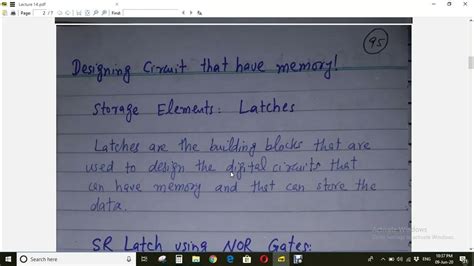 Lecture 14.pdf
Page: 2 / 7
Find:
Previous
95
Designing Circuit that have memory!
Storage Elements: Latches
Latches are the building blocks that are
used to design the digital circuits that
can have memory and that can store the
data.
Activate Windows
Go to Settings to activate Windows.
SR Latch using NOR Gates:
Search here
10:37 PM
09-Jun-20